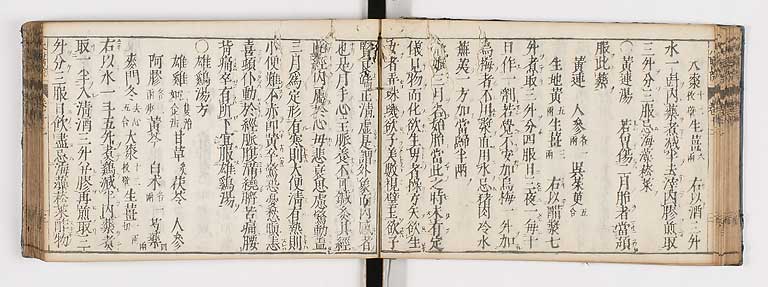 大棗 十二枚擘 生薑 六 右以酒三升
水一斗內藥煮減半去滓內膠煎取
三升分三服忌海藻菘菜
〇黃連湯 若曾傷二月胎者當預
服此藥
黃連 人參 吳茱萸 五合
生地黃 五兩 生薑 三兩 右以醋漿七
升煮取三升分四服日三夜一每十
日作一劑若覺不安加烏梅一升加
烏梅者不用漿直用水忌猪肉冷水
蕪荑一方加當歸半兩
妊娠三月名始胎當此之時未有定
儀見物而化欲生男者操弓矢欲生
女者弄珠璣欲子美好數視璧玉欲子
賢良端坐清虛是謂外象而內感者
也是月手心主脈養不可鍼灸其經
此經內屬於心毋悲哀思慮驚動蓋
三月爲定形有寒則大便清有熱則
小便難不赤即黃卒驚恐憂愁嗔恚
喜頓仆動於經脈腹滿繞臍苦痛腰
背痛卒有所下宜服雄鷄湯
〇雄鷄湯方
雄雞 一隻治如食法 甘草 茯苓 人參
阿膠 各二兩 黃芩 白朮 各一兩 芍藥 四
麥門冬 五合去心 大棗 十二枚擘 生薑 一兩切
右以水一斗五升煮鷄減半內藥煮
取一半入清酒三升并膠再煎取三
升分三服日飲盡忌海藻菘菜酢物